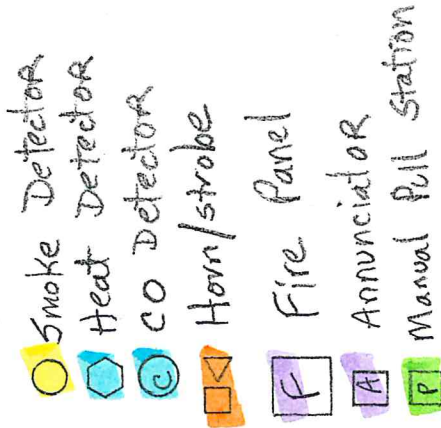 Smoke Detector
Heat Detector
C CO Detector
Horn/strobe
F Fire Panel
A Annunciator
P Manual Pull Station